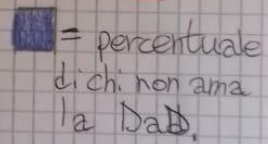 = percentuale
di chi non ama
la DaD.